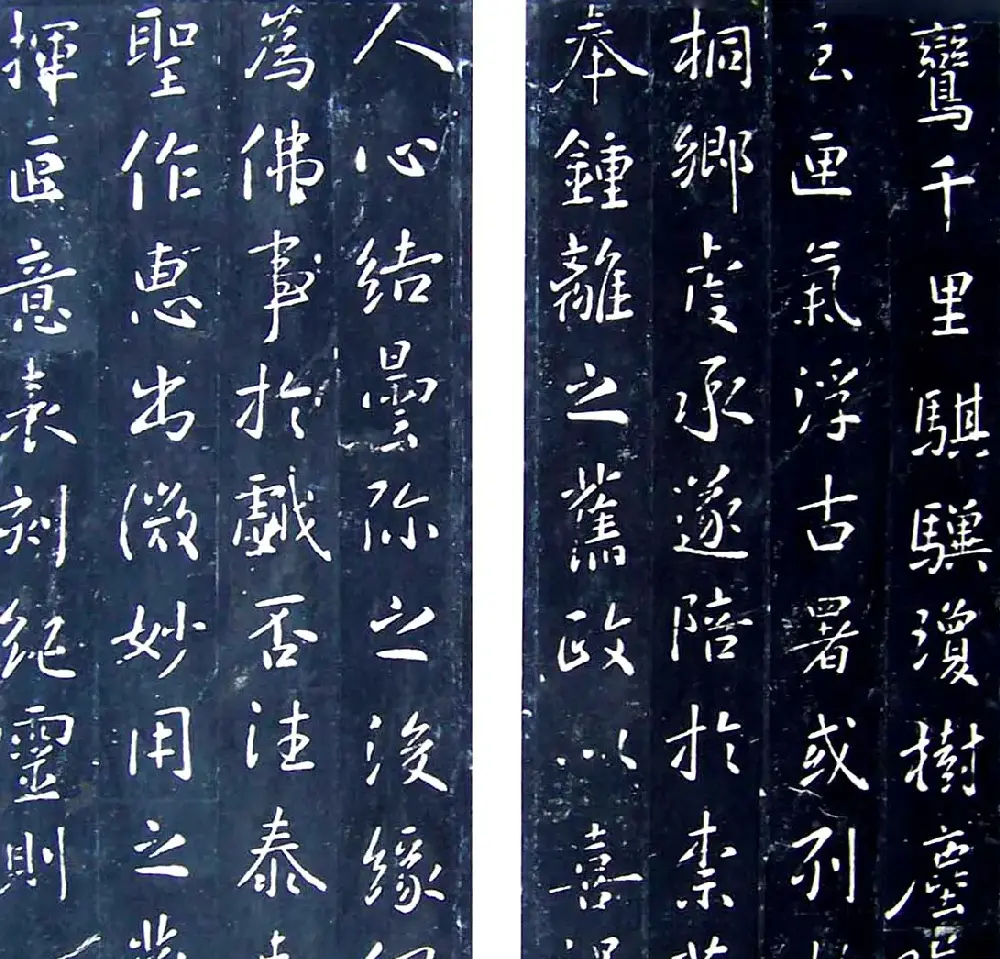 鸞千里騏驥瓊樹塵
玉匣氣浮古署或列
桐鄉虔承遂陪於柰
奉鍾離之舊政以喜
人心結曇弥之後緣
為佛事於戲否注泰
聖作惠出微妙用之
揮匠意表刻紀靈則